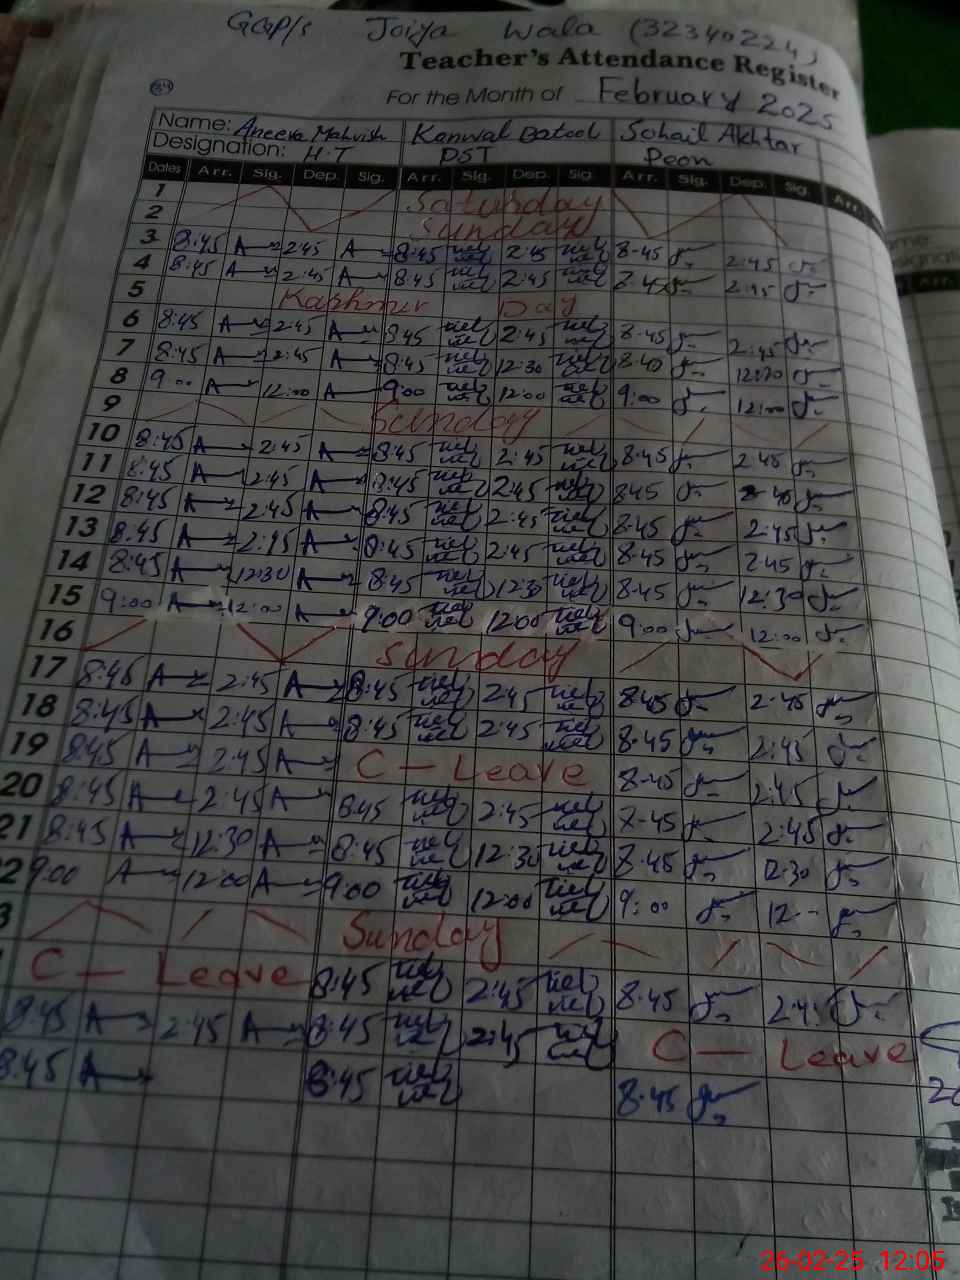 GGP/s Joiya Wala (32340224)
Teacher's Attendance Register
For the Month of February 2025
Name: Aneeva Mahvish Kanwal Batool Sohail Akhtar
Designation: H.T PST Peon
Dates Arr. Sig. Dep. Sig. Arr. Sig. Dep. Sig. Arr. Sig. Dep. Sig. Arr.
1 Saturday
2 Sunday
3 8:45 2:45 8:45 2:45 8-45 2:45
4 8:45 2:45 8:45 2:45 2:45
5 Kashmir Day
6 8:45 2:45 8:45 2:45 8-45 2:45
7 8:45 2:45 8:45 12:30 8:40 12:30
8 9:00 12:00 9:00 12:00 9:00 12:00
9 Sunday
10 8:45 2:45 8:45 2:45 8:45 2:45
11 8:45 2:45 8:45 2:45 8:45
12 8:45 2:45 8:45 2:45 8:45 2:45
13 8:45 2:45 8:45 2:45 8:45 2:45
14 8:45 12:30 8:45 12:30 8:45 12:30
15 9:00 12:00 9:00 12:00 9:00 12:00
16 Sunday
17 8:45 2:45 8:45 2:45 8:45 2:45
18 8:45 2:45 8:45 2:45 8-45 2:45
19 8:45 2:45 C - Leave 8-45 2:45
20 8:45 2:45 8:45 2:45 2:45
21 8:45 12:30 8:45 12:30 8:45 12:30
22 9:00 12:00 9:00 12:00 9:00 12--
3 Sunday
C - Leave 8:45 2:45 8:45 2:4
8:45 2:45 8:45 2:45 C - Leave
8:45 8:45 8-45
26-02-25 12:05